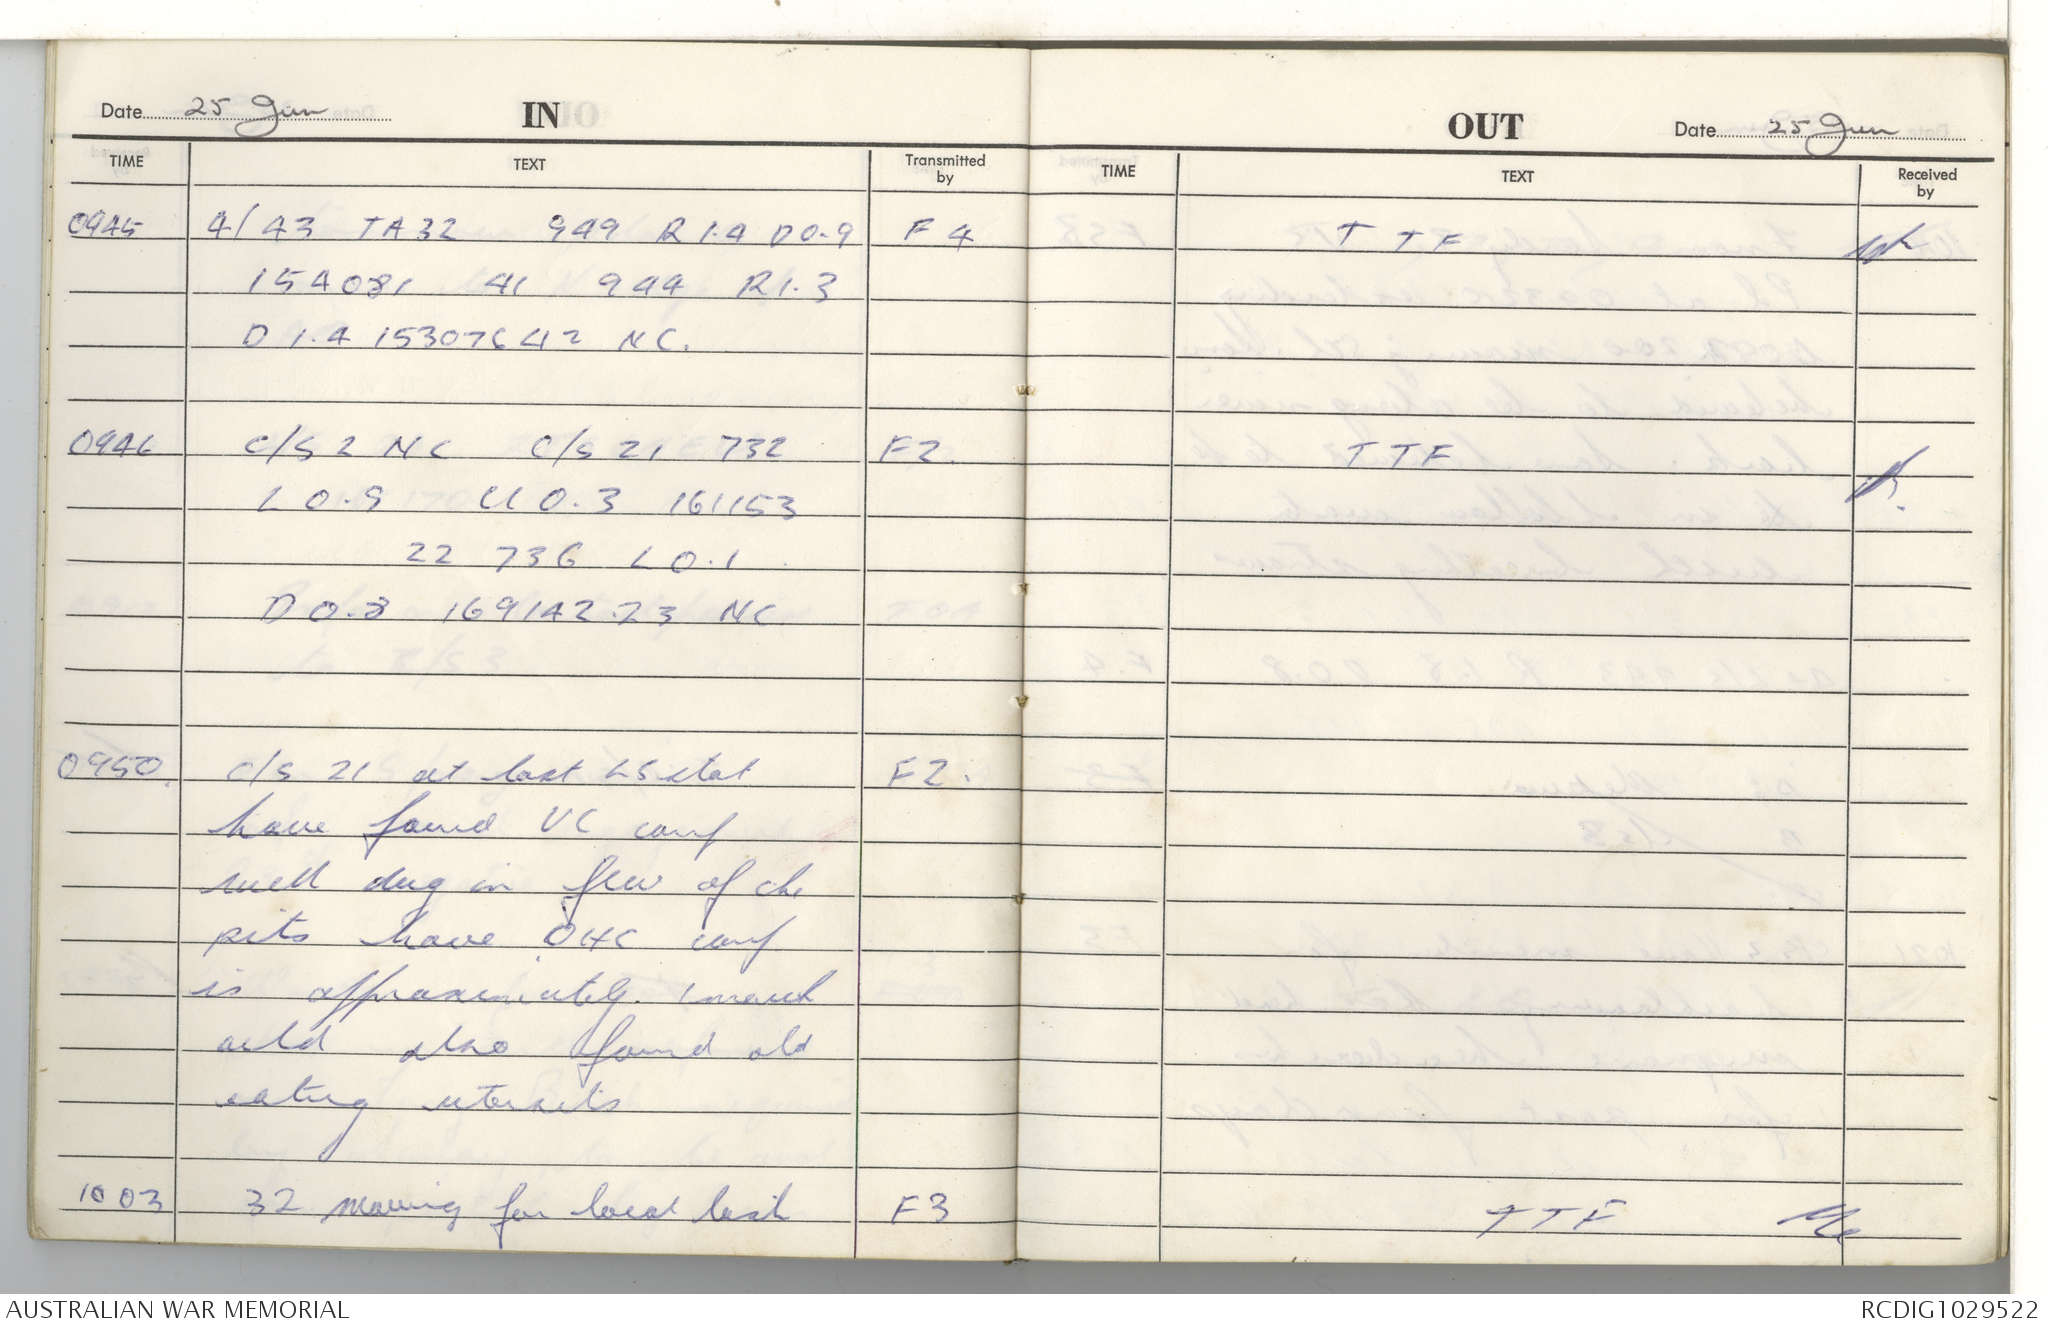 Date 25 Jun IN
TIME TEXT Transmitted by
0945 4/ 43 TA 32 949 R 1.4 D 0.9 F 4
154081 41 944 R 1.3
D 1.4 153076 42 NC.
0946 C/S 2 NC C/S 21 732 F2.
L 0.9 U 0.3 161153
22 736 L 0.1
D 0.8 169142.23 NC
0950. C/S 21 at last LS stat F2.
have found VC camp
well dug in few of the
pits have OHC camp
is approximately 1 month
old also found old
eating utensils
1003 32 moving for local look F3
OUT Date 25 Jun
TIME TEXT Received by
T T F
T T F
T T F
AUSTRALIAN WAR MEMORIAL
RCDIG1029522